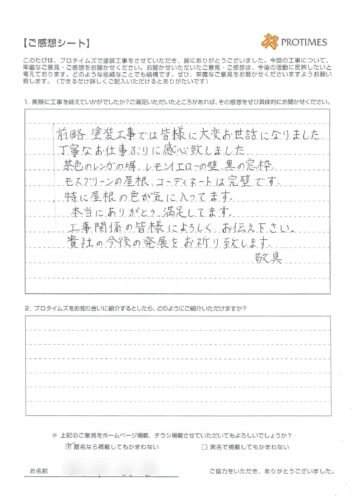 【ご感想シート】
PROTIMES
このたびは、プロタイムズで塗装工事をさせていただき、誠にありがとうございました。今回の工事について、
率直なご意見・ご感想をお聞かせください。お聞かせいただいたご意見・ご感想は、今後の活動に反映したいと
考えております。どのような些細なことでも結構です。ぜひ、率直なご意見をお聞かせくださいますようお願い
致します。（できるだけ詳しくご記入いただけるとありがたいです）
1. 実際に工事を終えていかがでしたか？ご満足いただいたところがあれば、その感想をぜひ具体的にお聞かせください。
前略 塗装工事では皆様に大変お世話になりました
丁寧なお仕事ぶりに感心致しました
茶色のレンガの塀、レモンイエローの壁、黒の窓枠
モスグリーンの屋根、コーディネートは完璧です.
特に屋根の色が気に入ってます.
本当にありがとう、満足してます.
工事関係の皆様によろしく、お伝え下さい。
貴社の今後の発展をお祈り致します.
敬具
2. プロタイムズをお知り合いに紹介するとしたら、どのようにご紹介いただけますか？
※ 上記のご意見をホームページ掲載、チラシ掲載させていただいてもよろしいでしょうか？
匿名なら掲載してもかまわない
実名で掲載してもかまわない
お名前
ご協力をいただき、ありがとうございました。